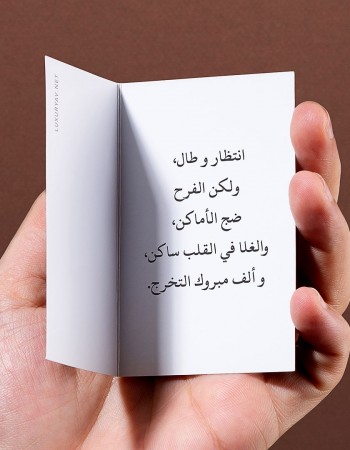 انتظار و طال،
ولكن الفرح
ضج الأماكن،
والغلا في القلب ساكن،
و ألف مبروك التخرج.